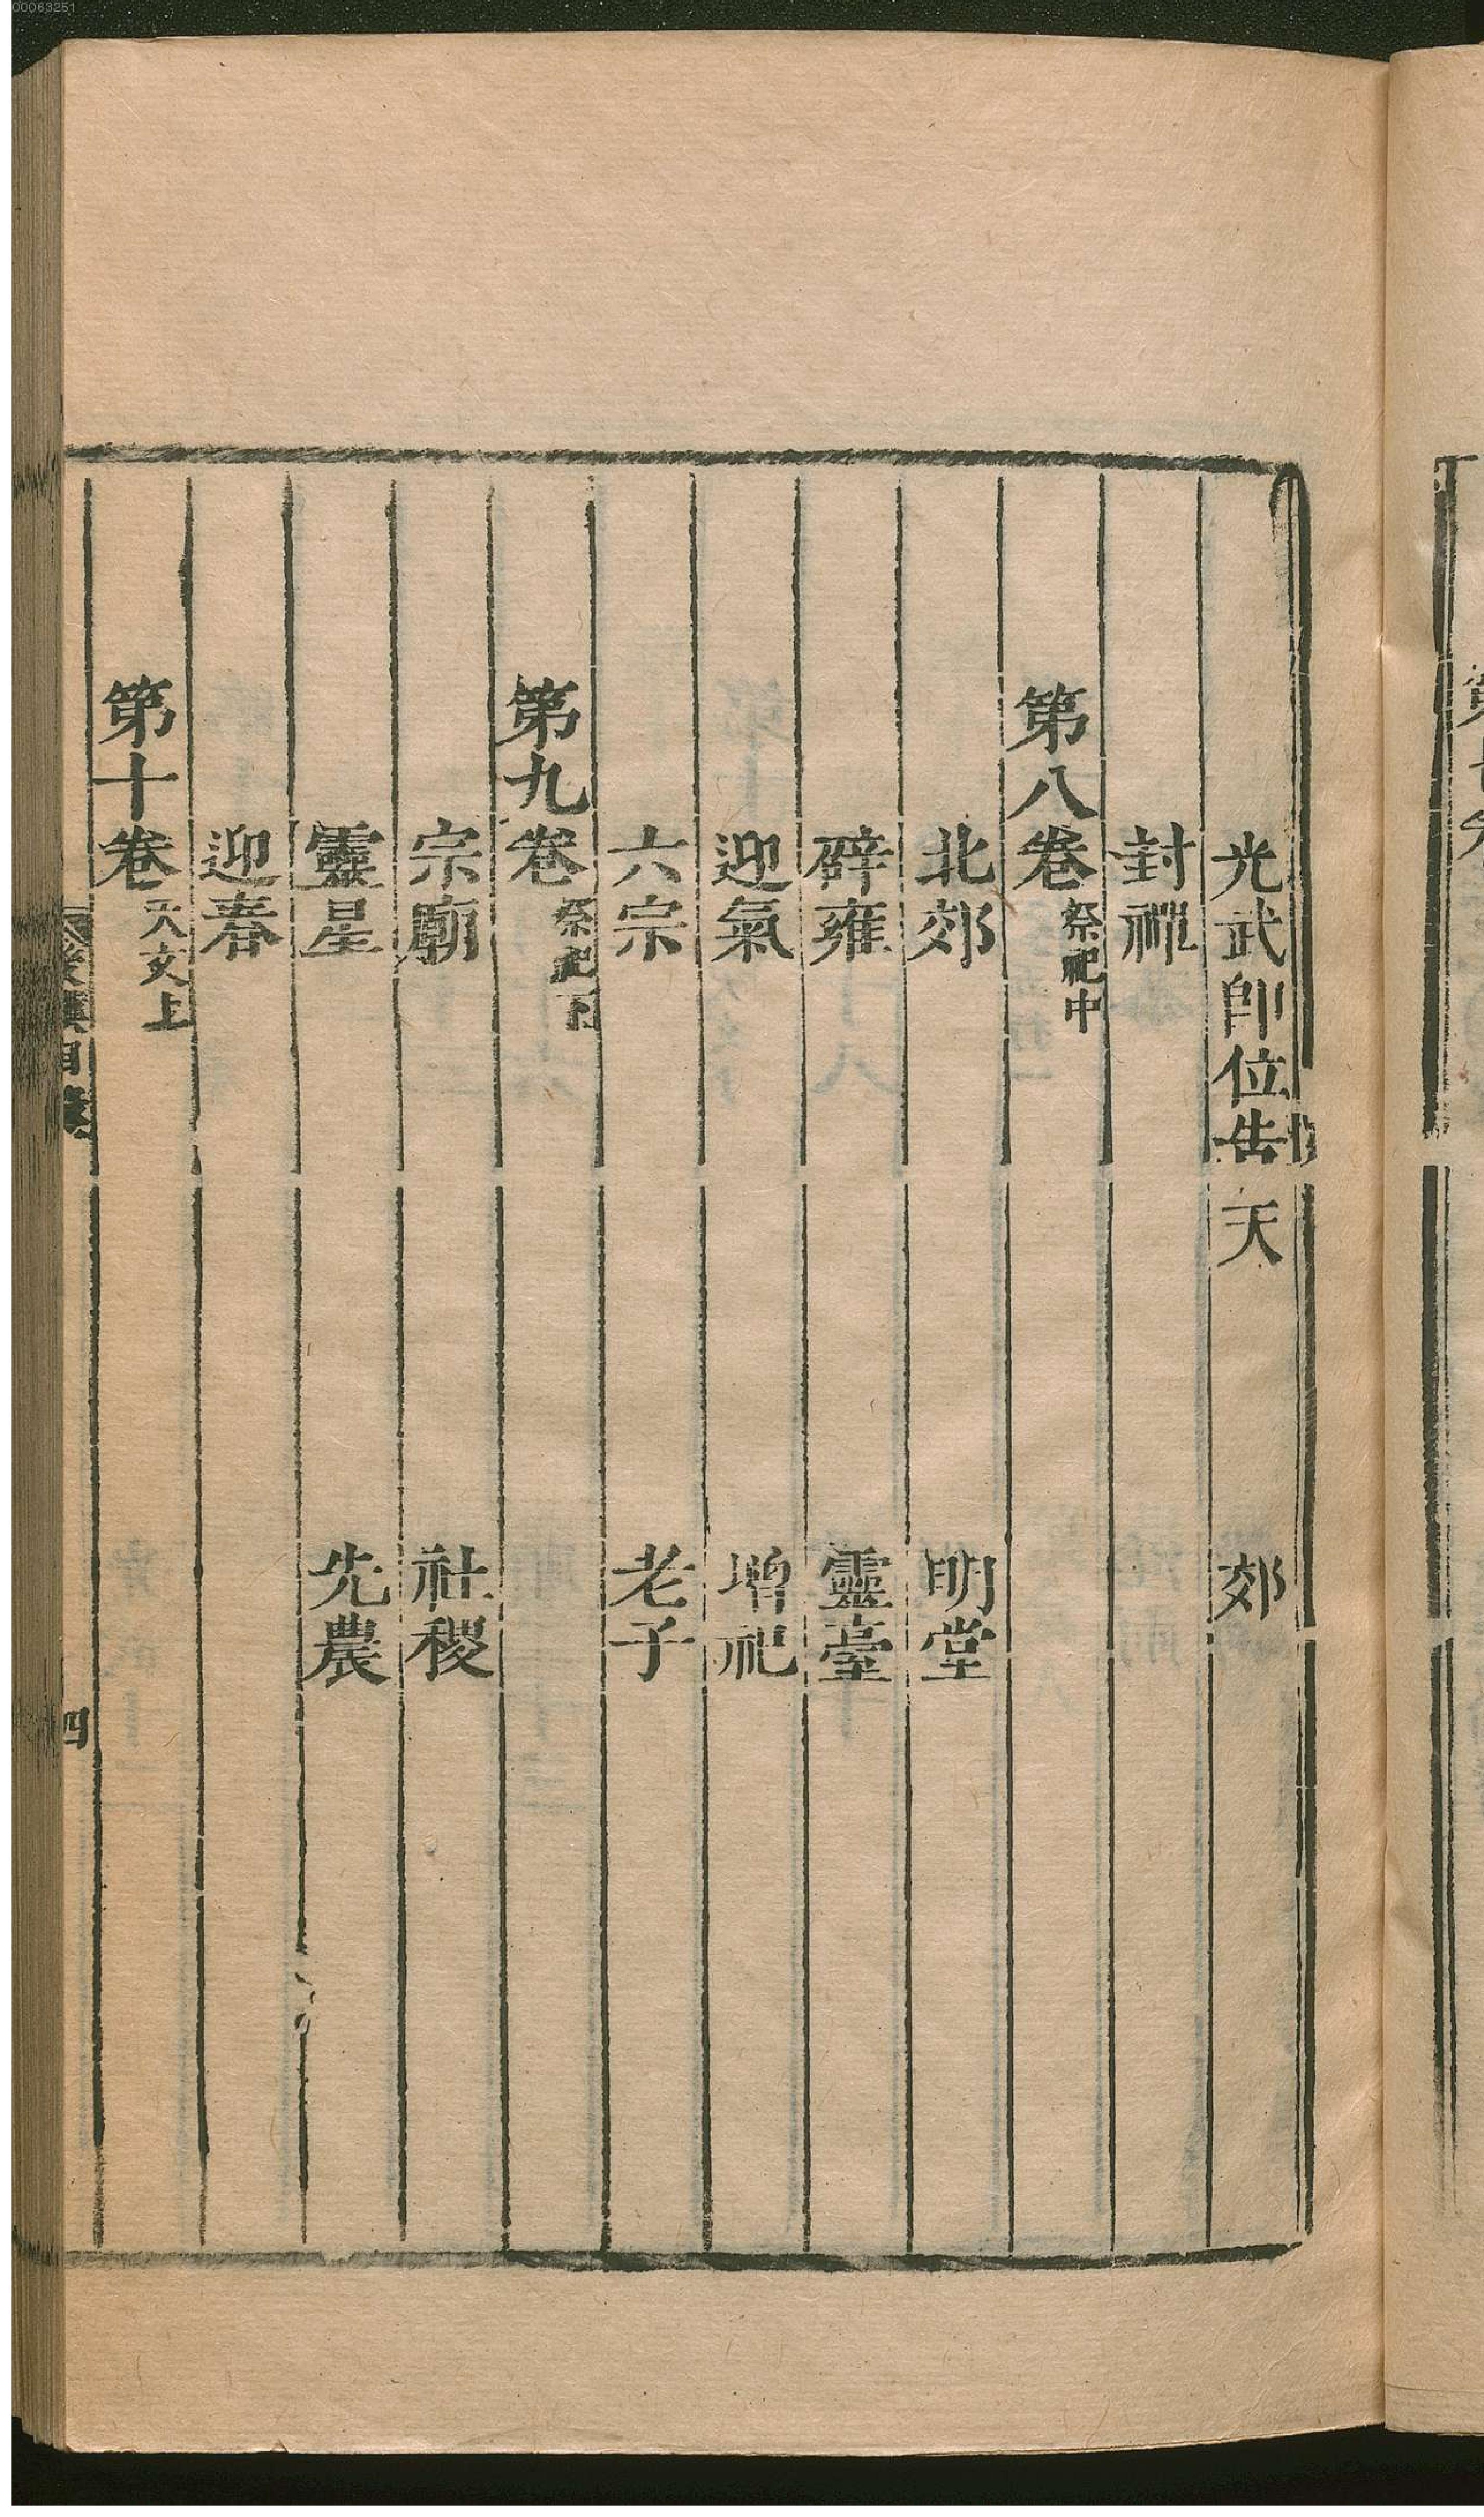 光武即位告天　郊
封禪
第八卷祭祀中
北郊　明堂
辟雍　靈臺
迎氣　增祀
六宗　老子
第九卷祭祀下
宗廟　社稷
靈星　先農
迎春
第十卷天文上
後漢目錄　四
00063251